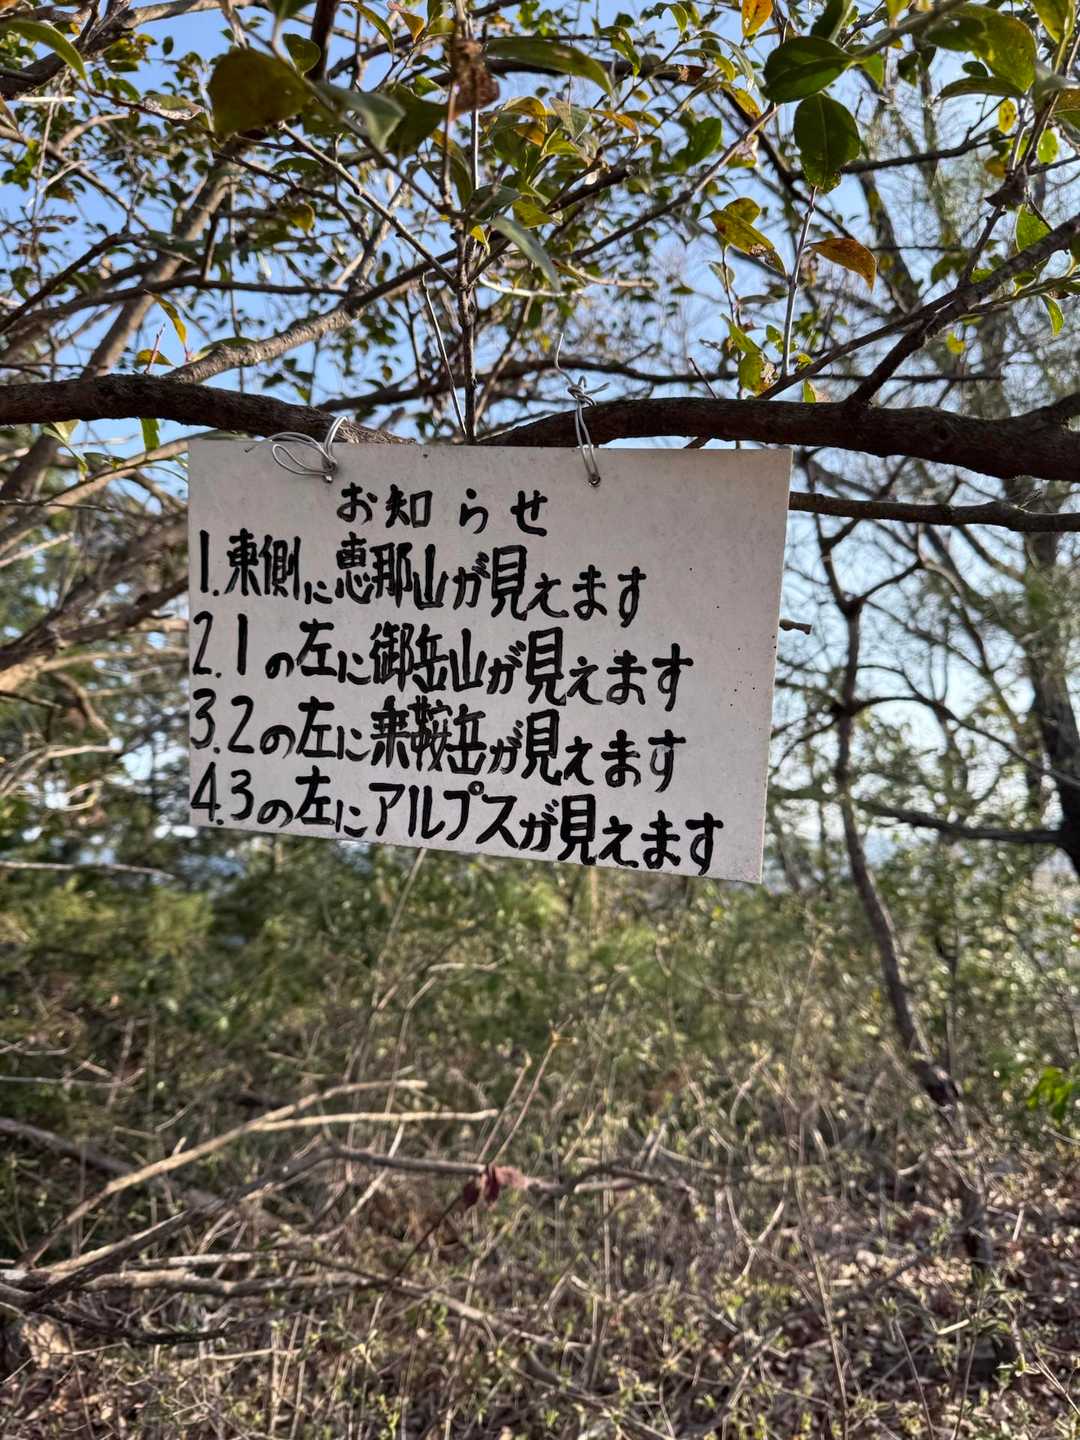 お知らせ
1.東側に恵那山が見えます
2.1の左に御岳山が見えます
3.2の左に乗鞍岳が見えます
4.3の左にアルプスが見えます